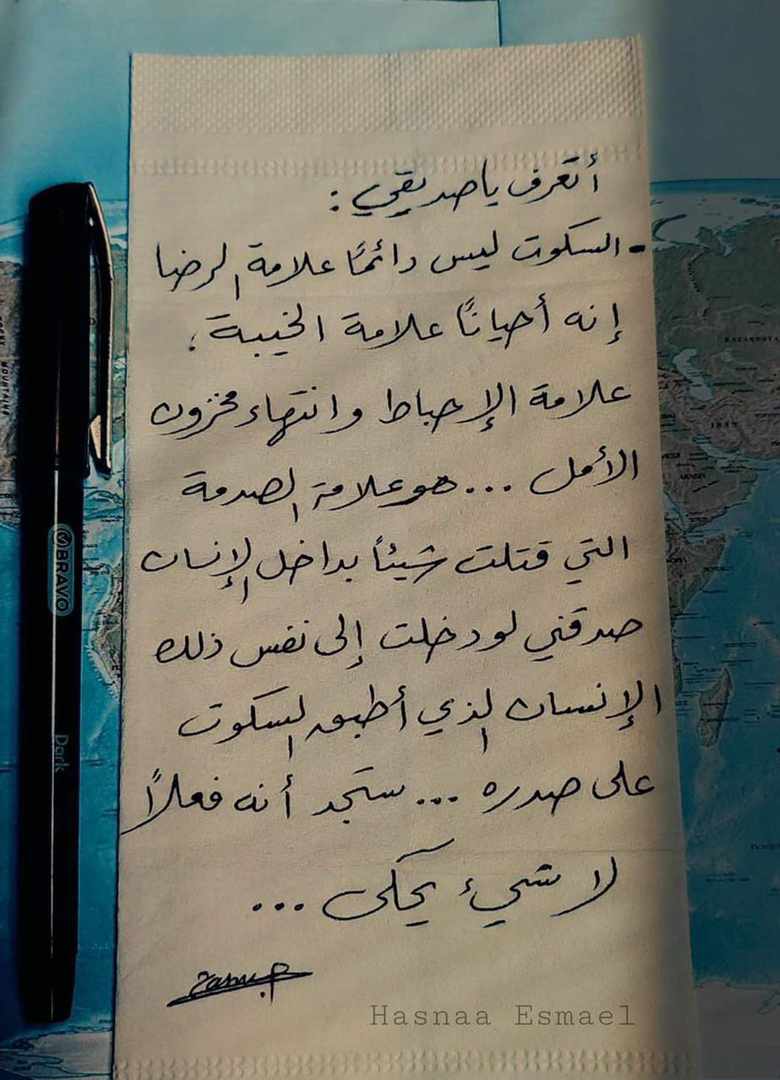 أتعرف ياصديقي :
- السكوت ليس دائمًا علامة الرضا
إنه أحيانًا علامة الخيبة ،
علامة الإحباط وانتهاء مخزون
الأمل ... هو علامة الصدمة
التي قتلت شيئاً بداخل الإنسان
صدقني لو دخلت إلى نفس ذلك
الإنسان الذي أطبق السكوت
على صدره ... ستجد أنه فعلاً
لا شيء يحكى ...
Hasnaa Esmael
BRAVO
Dark